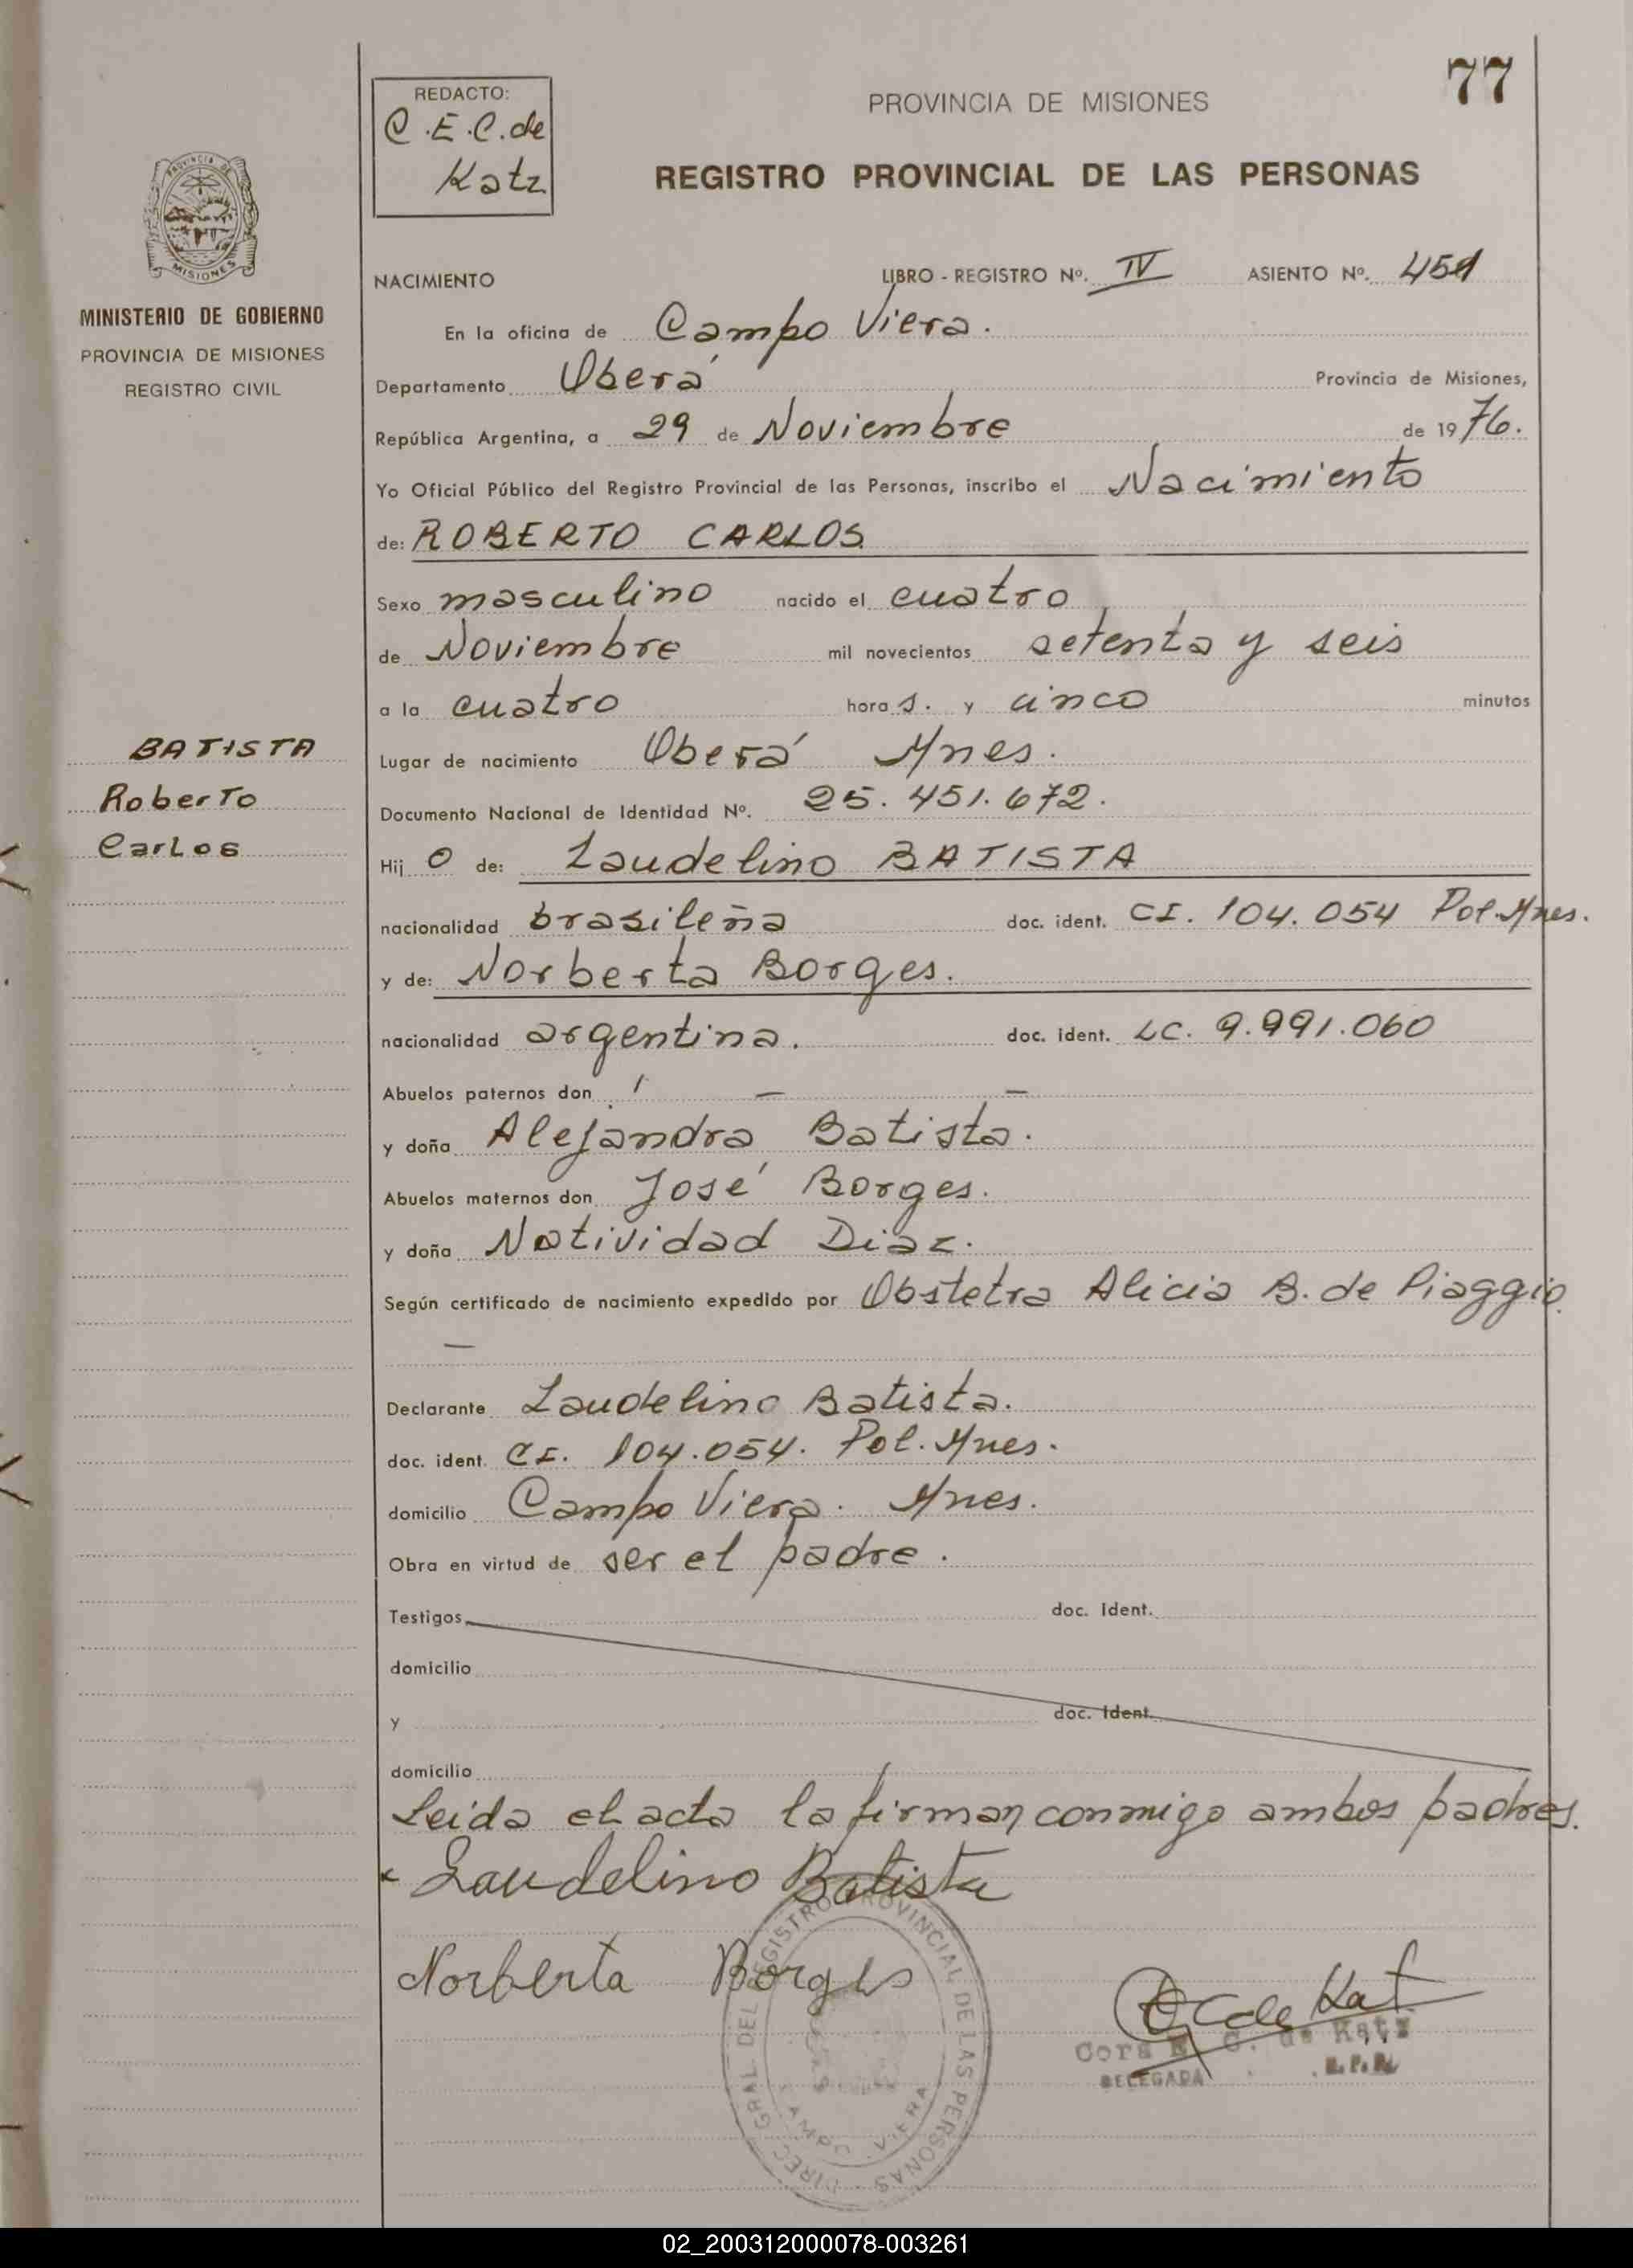 77
REDACTO:
C.E.C. de
Katz
PROVINCIA DE MISIONES
REGISTRO PROVINCIAL DE LAS PERSONAS
PROVINCIA DE
MISIONES
MINISTERIO DE GOBIERNO
PROVINCIA DE MISIONES
REGISTRO CIVIL
NACIMIENTO LIBRO - REGISTRO Nº. IV ASIENTO Nº. 451
En la oficina de Campo Viera.
Departamento Oberá Provincia de Misiones,
República Argentina, a 29 de Noviembre de 1976.
Yo Oficial Público del Registro Provincial de las Personas, inscribo el Nacimiento
de: ROBERTO CARLOS
Sexo masculino nacido el cuatro
de Noviembre mil novecientos setenta y seis
a la cuatro hora s. y cinco minutos
BATISTA
Roberto
Carlos
Lugar de nacimiento Oberá Mnes.
Documento Nacional de Identidad Nº. 25.451.672.
Hij o de: Laudelino BATISTA
nacionalidad brasileña doc. ident. CI. 104.054 Pol. Mnes.
y de: Norberta Borges.
nacionalidad argentina. doc. ident. LC. 9.991.060
Abuelos paternos don — —
y doña Alejandra Batista.
Abuelos maternos don José Borges.
y doña Natividad Diaz.
Según certificado de nacimiento expedido por Obstetra Alicia B. de Piaggio.
—
Declarante Laudelino Batista.
doc. ident. CI. 104.054. Pol. Mnes.
domicilio Campo Viera. Mnes.
Obra en virtud de ser el padre.
Testigos doc. Ident.
domicilio
y doc. Ident.
domicilio
Leida el acta la firman conmigo ambos padres.
Laudelino Batista
Norberta Borges
C E C de Kat
Cora E. C. de Katz
DELEGADA R. P. P.
DIREC. GRAL. DEL REGISTRO PROVINCIAL DE LAS PERSONAS
CAMPO VIERA
02_200312000078-003261